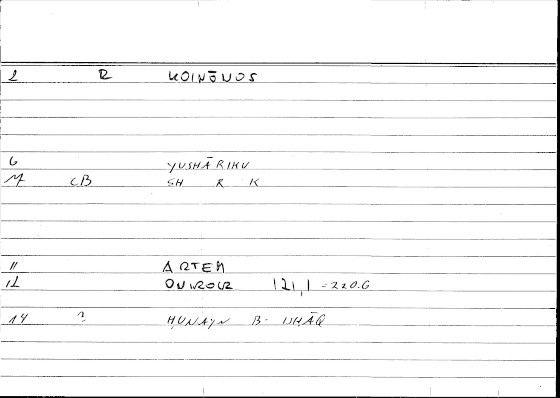 2 R KOINŌNOS
6 YUSHĀRIKU
M CB SH R K
11 ARTEM
12 ONIROCR 121,1 = 220.6
14 ? ḤUNAYN B- ISHĀQ